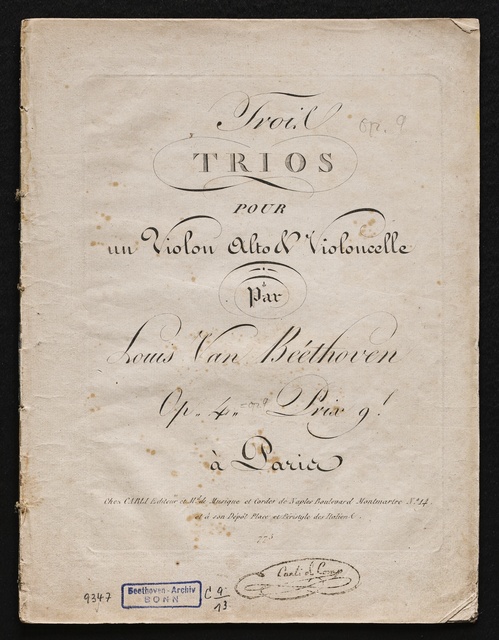 Trois
op. 9
TRIOS
POUR
un Violon Alto & Violoncelle
Par
Louis Van Beéthoven
Op. 4. = op. 9 Prix 9.
à Paris
Chez CARLI Editeur et Md. de Musique et Cordes de Naples Boulevard Montmartre No. 14.
et à son Dépôt Place et Péristyle des Italiens.
Carli et Comp
9347
Beethoven-Archiv
BONN
C 9
13